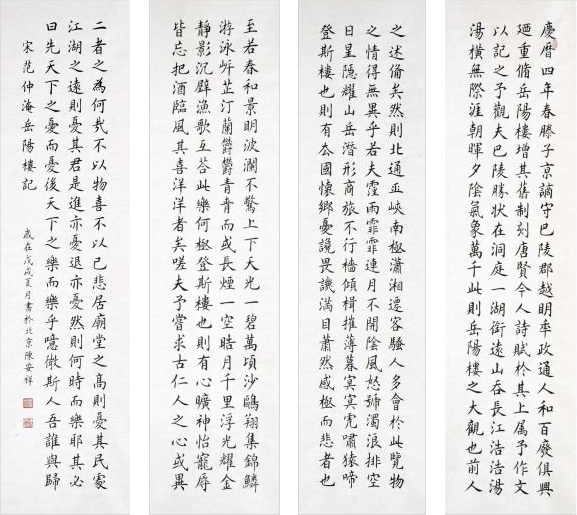 慶曆四年春滕子京謫守巴陵郡越明年政通人和百廢俱興
廼重脩岳陽樓增其舊制刻唐賢今人詩賦於其上属予作文
以記之予觀夫巴陵勝狀在洞庭一湖銜遠山吞長江浩浩湯
湯橫無際涯朝暉夕陰氣象萬千此則岳陽樓之大觀也前人
之述備矣然則北通巫峽南極瀟湘遷客騷人多會於此覽物
之情得無異乎若夫霪雨霏霏連月不開陰風怒號濁浪排空
日星隱耀山岳潛形商旅不行檣傾楫摧薄暮冥冥虎嘯猿啼
登斯樓也則有去國懷鄉憂讒畏譏滿目蕭然感極而悲者也
至若春和景明波瀾不驚上下天光一碧萬頃沙鷗翔集錦鱗
游泳岸芷汀蘭欝欝青青而或長煙一空皓月千里浮光耀金
靜影沉璧漁歌互荅此樂何極登斯樓也則有心曠神怡寵辱
皆忘把酒臨風其喜洋洋者矣嗟夫予嘗求古仁人之心或異
二者之為何哉不以物喜不以己悲居廟堂之高則憂其民處
江湖之遠則憂其君是進亦憂退亦憂然則何時而樂耶其必
曰先天下之憂而憂後天下之樂而樂乎噫微斯人吾誰與歸
宋范仲淹岳陽樓記
歲在戊戌夏月書於北京陳安祥